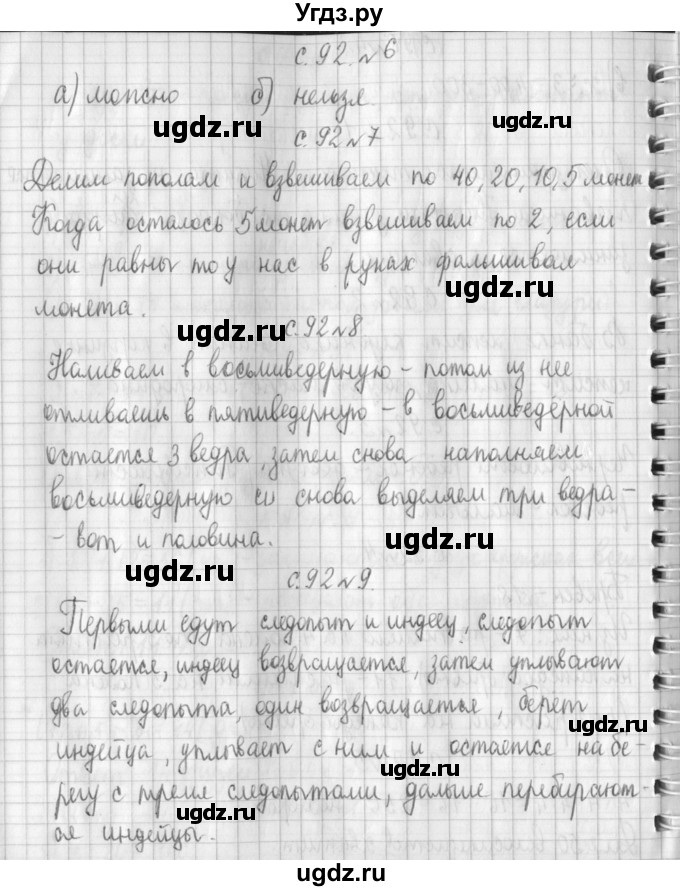 Угдз.ру
с.92.№6
а) можно б) нельзя.
ugdz.ru ugdz.ru
с.92№7
Делим пополам и взвешиваем по 40,20,10,5 монет
Когда осталось 5 монет взвешиваем по 2, если
они равны то у нас в руках фальшивая
ugdz.ru
монета.
ugdz.ru
с.92№8
Наливаем в восьмиведерную – потом из нее
отливаешь в пятиведерную – в восьмиведёрной
остается 3 ведра, затем снова наполняем
восьмиведерную и снова выделяем три ведра –
– вот и половина.
ugdz.ru
ugdz.ru
с.92№9.
Первыми едут следопыт и индеец, следопыт
остается, индеец возвращается, затем уплывают
два следопыта, один возвращается, берет
ugdz.ru
индейца, уплывает с ним и остается на бе-
ugdz.ru
регу с тремя следопытами, дальше перебирают-
ся индейцы.
ugdz.ru